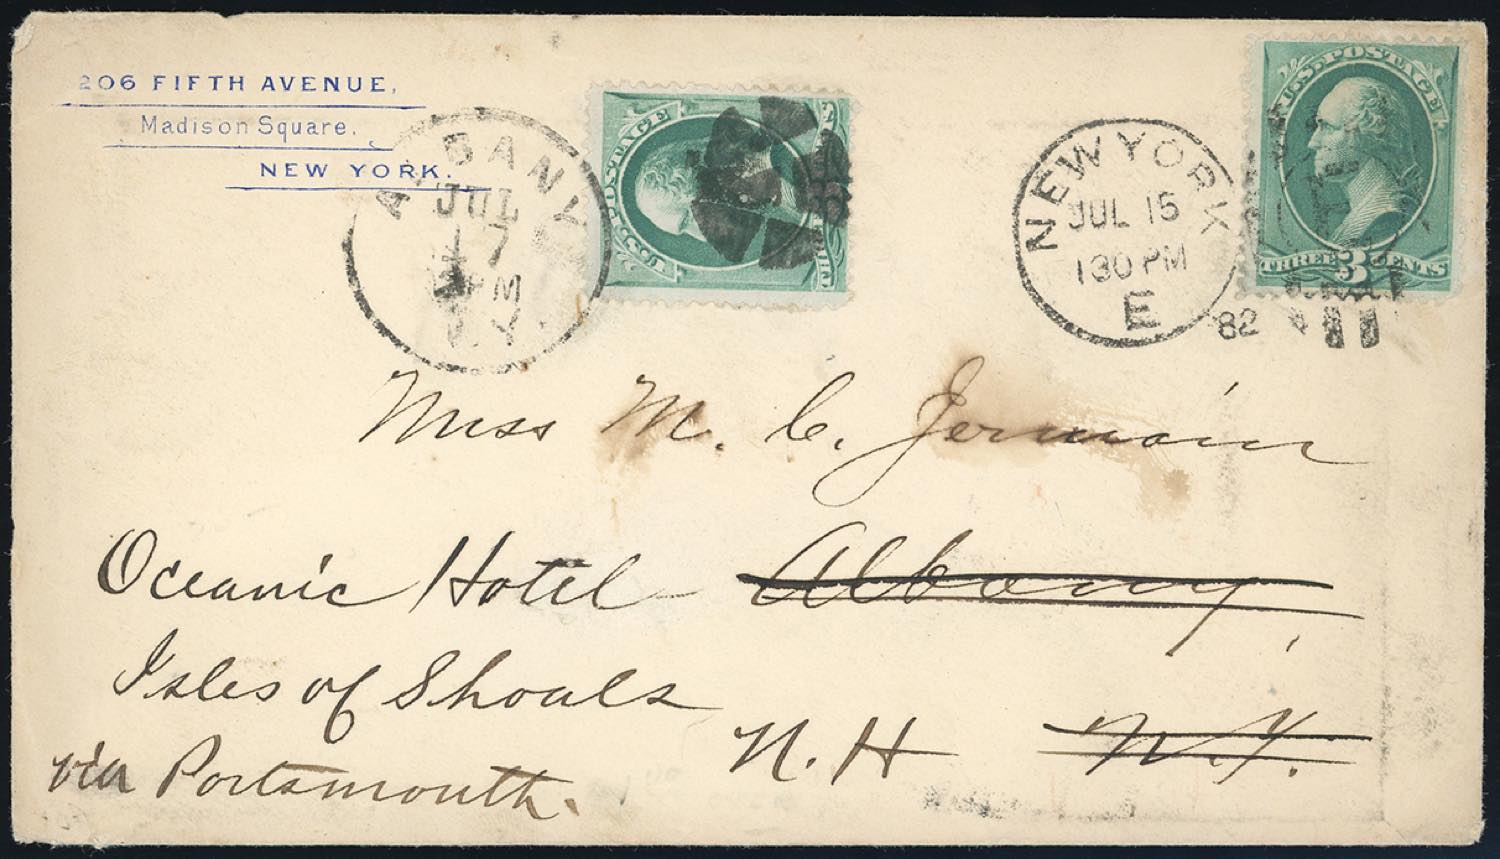 206 FIFTH AVENUE,
Madison Square.
NEW YORK.
ALBANY
JUL
17
PM
N.Y.
U.S. POSTAGE
NEW YORK
JUL 15
130 PM
E
82
U.S. POSTAGE
THREE 3 CENTS
Miss M. C. Jermain
Albany
N.Y.
Oceanic Hotel
Isles of Shoals
N.H
via Portsmouth.